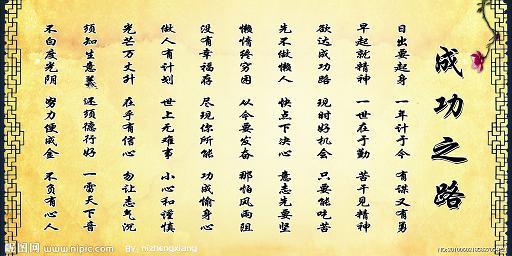 成功之路
日出要起身 一年计于今 有谋又有勇
早起就精神 一世在于勤 苦干见精神
欲达成功路 现时好机会 只要能吃苦
先不做懒人 快点下决心 意志先要坚
懒惰终穷困 从今要发奋 那怕风雨阻
没有幸福存 尽现你所能 功成愉身心
做人有计划 世上无难事 小心和谨慎
光芒万丈升 在乎有信心 勿让志气沉
须知生意义 还须德行好 一雷天下音
不白度光阴 努力便成金 不负有心人
昵图网 www.nipic.com By: nizhengxiang